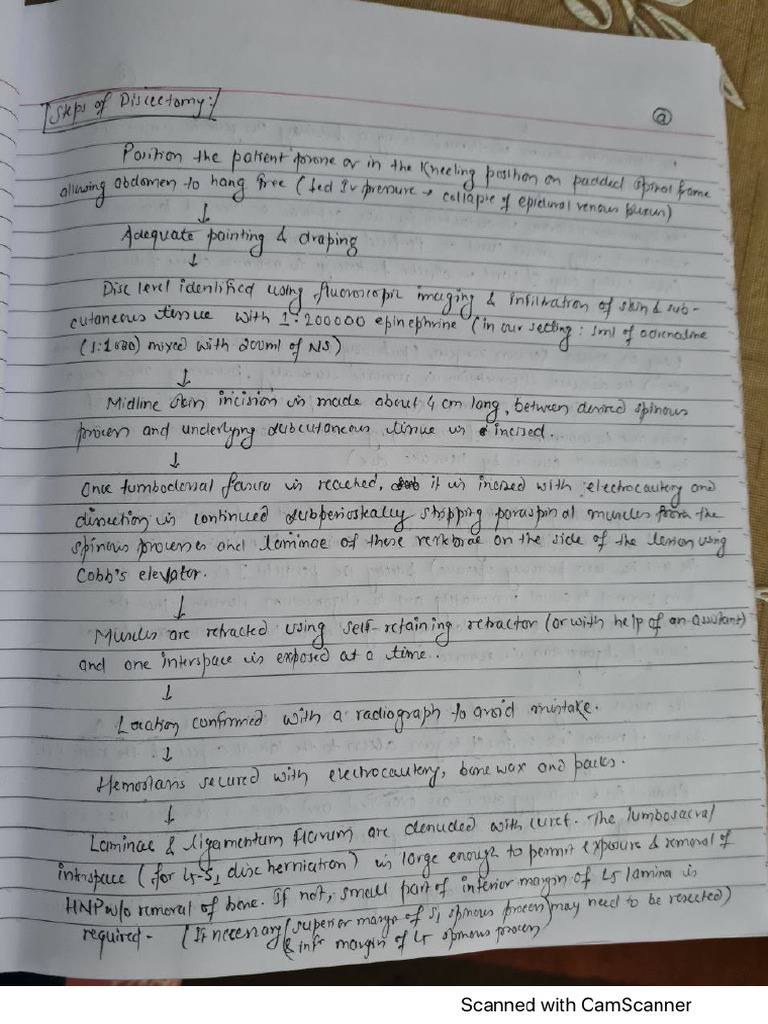 Steps of Discectomy:/
a
Position the patient prone or in the kneeling position on padded spinal frame
allowing abdomen to hang free (↓ed IV pressure → collapse of epidural venous plexus)
↓
Adequate painting & draping
↓
Disc level identified using fluoroscopic imaging & infiltration of skin & sub-
cutaneous tissue with 1:200000 epinephrine (in our setting: 1ml of adrenaline
(1:1000) mixed with 200ml of NS)
↓
Midline skin incision is made about 4 cm long, between desired spinous
process and underlying subcutaneous tissue is incised.
↓
Once lumbodorsal fascia is reached, it is incised with electrocautery and
dissection is continued subperiosteally stripping paraspinal muscles from the
spinous processes and laminae of these vertebrae on the side of the lesion using
Cobb's elevator.
↓
Muscles are retracted using self-retaining retractor (or with help of an assistant)
and one interspace is exposed at a time.
↓
Location confirmed with a radiograph to avoid mistake.
↓
Hemostasis secured with electrocautery, bone wax and packs.
↓
Laminae & ligamentum flavum are denuded with curet. The lumbosacral
interspace (for L5-S1 disc herniation) is large enough to permit exposure & removal of
HNP w/o removal of bone. If not, small part of inferior margin of L5 lamina is
required- (If necessary (superior margin of S1 spinous process) may need to be resected)
& infr margin of L5 spinous process
Scanned with CamScanner